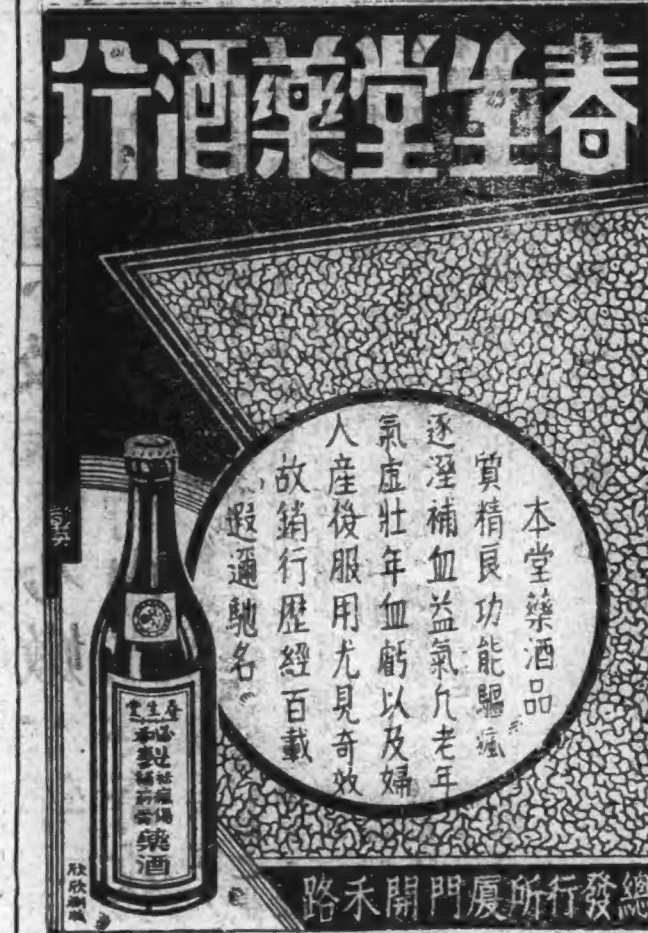 春生堂藥酒行
本堂藥酒品
質精良功能驅瘋
逐溼補血益氣凡老年
氣虛壯年血虧以及婦
人產後服用尤見奇效
故銷行歷經百載
遐邇馳名
春生堂
製
藥酒
欣欣
總發行所厦門開禾路